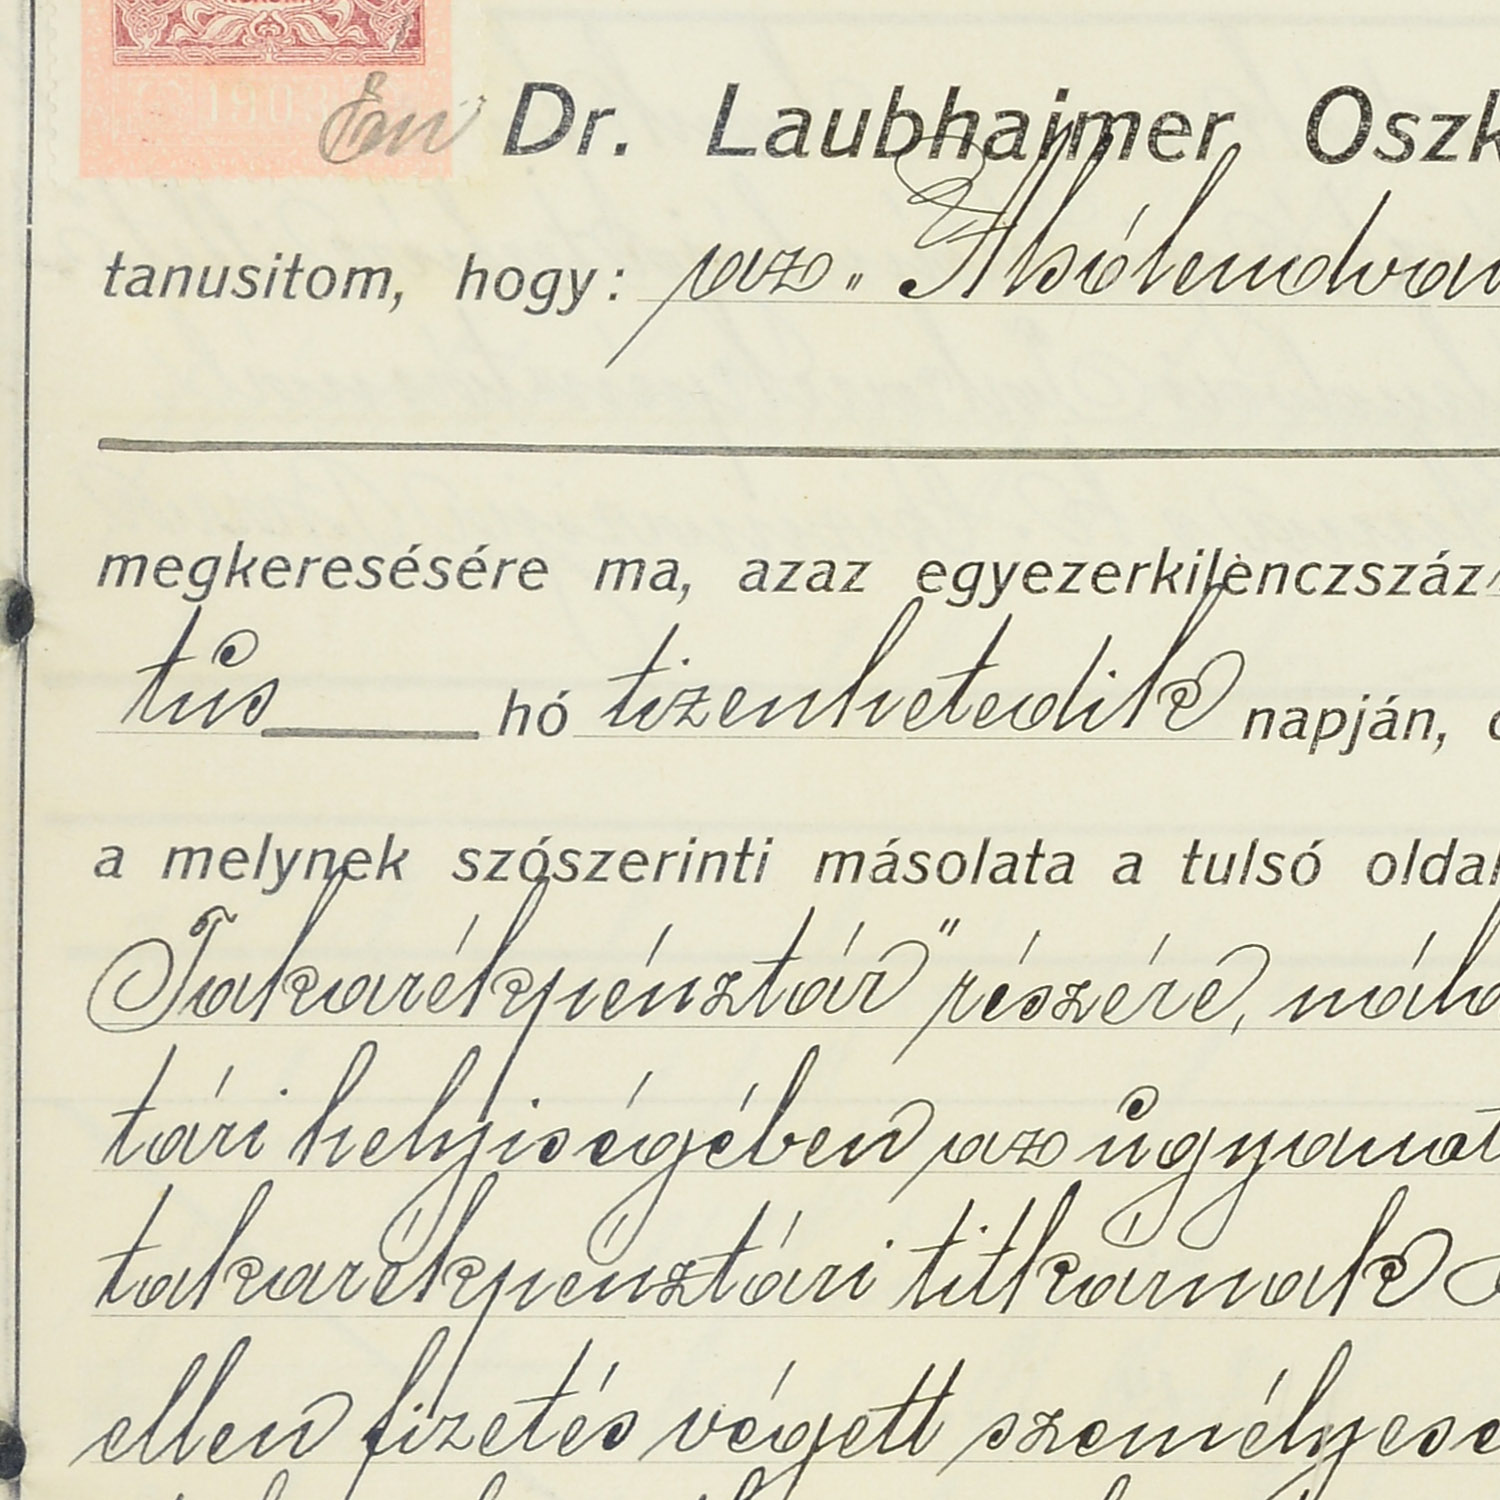 KORONA
1903
Én Dr. Laubhaimer Oszk
tanusitom, hogy: az „Alsólendvai
megkeresésére ma, azaz egyezerkilenczszáz
tus hó tizenhetedik napján, d
a melynek szószerinti másolata a tulsó oldal
Takarékpénztár" részére, nála
tári helyiségében az ügyanot
takarékpénztári titkárnak
ellen fizetés végett személyese